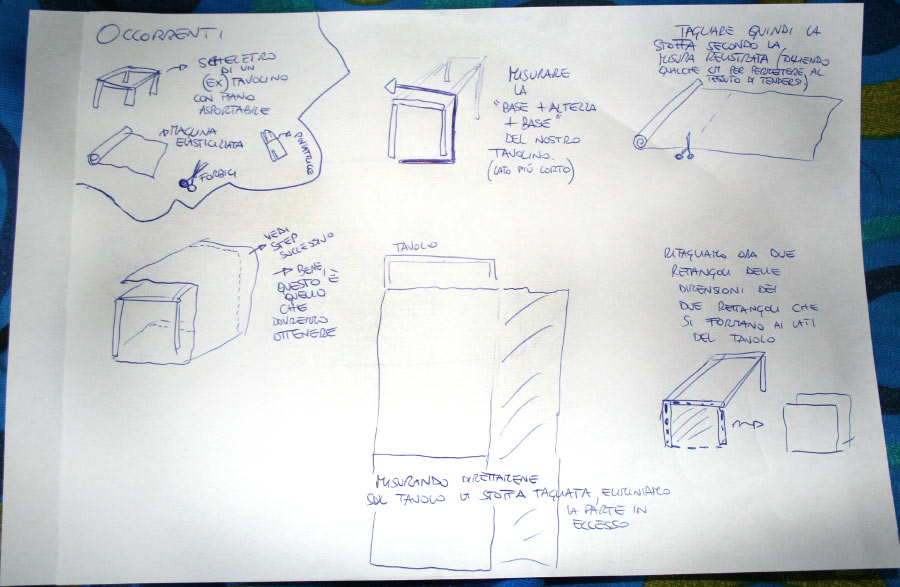 OCCORRENTI
SCHELETRO
DI UN
(EX) TAVOLINO
CON PIANO
ASPORTABILE
MAGLINA
ELASTICIZZATA
FORBICI
PINZATRICE
MISURARE
LA
"BASE + ALTEZZA
+ BASE"
DEL NOSTRO
TAVOLINO.
(LATO PIÙ CORTO)
TAGLIARE QUINDI LA
STOFFA SECONDO LA
MISURA REGISTRATA (TOGLIENDO
QUALCHE CM PER PERMETTERE AL
TESSUTO DI TENDERSI)
VEDI
STEP
SUCCESSIVO
BENE,
QUESTO È
QUELLO
CHE
DOVRETE
OTTENERE
TAVOLO
MISURANDO DIRETTAMENE
SUL TAVOLO LA STOFFA TAGLIATA, ELIMINIAMO
LA PARTE IN
ECCESSO
RITAGLIAMO ORA DUE
RETANGOLI DELLE
DIMENSIONI DEI
DUE RETTANGOLI CHE
SI FORMANO AI LATI
DEL TAVOLO